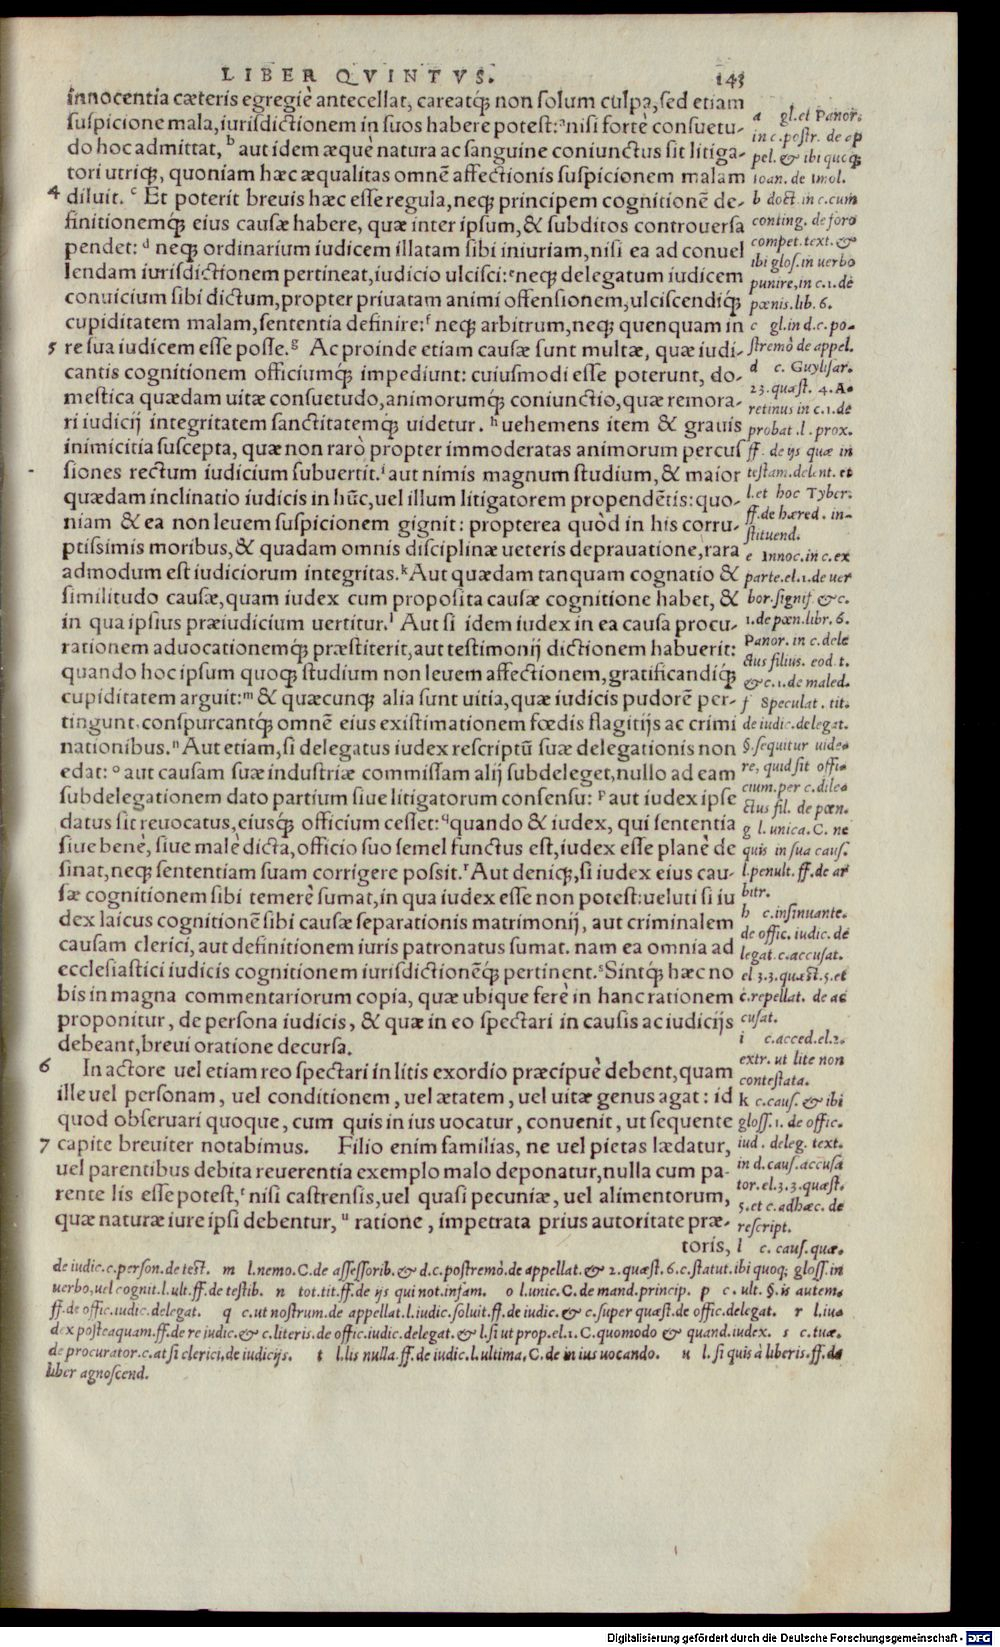 LIBER QVINTVS. 143
innocentia cæteris egregiè antecellat, careatq́; non solum culpa, sed etiam
suspicione mala, iurisdictionem in suos habere potest: ᵃ nisi fortè consuetu-
do hoc admittat, ᵇ aut idem æquè natura ac sanguine coniunctus sit litiga-
tori utriq;, quoniam hæc æqualitas omnē affectionis suspicionem malam
4 diluit. ᶜ Et poterit breuis hæc esse regula, neq; principem cognitionē de-
finitionemq́; eius causæ habere, quæ inter ipsum, & subditos controuersa
pendet: ᵈ neq; ordinarium iudicem illatam sibi iniuriam, nisi ea ad conuel
lendam iurisdictionem pertineat, iudicio ulcisci: ᵉ neq; delegatum iudicem
conuicium sibi dictum, propter priuatam animi offensionem, ulciscendiq́;
cupiditatem malam, sententia definire: ᶠ neq; arbitrum, neq; quenquam in
5 re sua iudicem esse posse. ᵍ Ac proinde etiam causæ sunt multæ, quæ iudi-
cantis cognitionem officiumq́; impediunt: cuiusmodi esse poterunt, do-
mestica quædam uitæ consuetudo, animorumq́; coniunctio, quæ remora-
ri iudicij integritatem sanctitatemq; uidetur. ʰ uehemens item & grauis
inimicitia suscepta, quæ non rarò propter immoderatas animorum percus
siones rectum iudicium subuertit. ⁱ aut nimis magnum studium, & maior
quædam inclinatio iudicis in hūc, uel illum litigatorem propendētis: quo-
niam & ea non leuem suspicionem gignit: propterea quòd in his corru-
ptissimis moribus, & quadam omnis disciplinæ ueteris deprauatione, rara
admodum est iudiciorum integritas. ᵏ Aut quædam tanquam cognatio &
similitudo causæ, quam iudex cum proposita causæ cognitione habet, &
in qua ipsius præiudicium uertitur. ˡ Aut si idem iudex in ea causa procu-
rationem aduocationemq́; præstiterit, aut testimonij dictionem habuerit:
quando hoc ipsum quoq; studium non leuem affectionem, gratificandiq́;
cupiditatem arguit: ᵐ & quæcunq; alia sunt uitia, quæ iudicis pudorē per-
tingunt, conspurcantq́; omnē eius existimationem fœdis flagitijs ac crimi
nationibus. ⁿ Aut etiam, si delegatus iudex rescriptū suæ delegationis non
edat: ᵒ aut causam suæ industriæ commissam alij subdeleget, nullo ad eam
subdelegationem dato partium siue litigatorum consensu: ᵖ aut iudex ipse
datus sit reuocatus, eiusq́; officium cesset: q quando & iudex, qui sententia
siue benè, siue malè dicta, officio suo semel functus est, iudex esse planè de
sinat, neq; sententiam suam corrigere possit. ʳ Aut deniq;, si iudex eius cau-
sæ cognitionem sibi temerè sumat, in qua iudex esse non potest: ueluti si iu
dex laicus cognitionē sibi causæ separationis matrimonij, aut criminalem
causam clerici, aut definitionem iuris patronatus sumat. nam ea omnia ad
ecclesiastici iudicis cognitionem iurisdictionēq́; pertinent. ˢ Sintq́; hæc no
bis in magna commentariorum copia, quæ ubique ferè in hanc rationem
proponitur, de persona iudicis, & quæ in eo spectari in causis ac iudicijs
debeant, breui oratione decursa.
6 In actore uel etiam reo spectari in litis exordio præcipuè debent, quam
ille uel personam, uel conditionem, uel ætatem, uel uitæ genus agat: id
quod obseruari quoque, cum quis in ius uocatur, conuenit, ut sequente
7 capite breuiter notabimus. Filio enim familias, ne uel pietas lædatur,
uel parentibus debita reuerentia exemplo malo deponatur, nulla cum pa-
rente lis esse potest, ᵗ nisi castrensis, uel quasi pecuniæ, uel alimentorum,
quæ naturæ iure ipsi debentur, ᵘ ratione, impetrata prius autoritate præ-
toris,
a gl. et Panor.
in c. postr. de ap
pel. & ibi quoq;
Ioan. de Imol.
b doct. in c. cum
conting. de foro
compet. text. &
ibi glos. in uerbo
punire, in c. 1. de
pœnis. lib. 6.
c gl. in d. c. po-
stremò de appel.
d c. Guylisar.
23. quæst. 4. A-
retinus in c. 1. de
probat. l. prox.
ff. de ijs quæ in
testam. delent. et
l. et hoc Tyber.
ff. de hæred. in-
stituend.
e Innoc. in c. ex
parte. el. 1. de uer
bor. signif. & c.
1. de pœn. libr. 6.
Panor. in c. dele
ctus filius. eod t.
& c. 1. de maled.
f Speculat. tit.
de iudic. delegat.
§. sequitur uide-
re, quid sit offi-
cium. per c. dile-
ctus fil. de pœn.
g l. unica. C. ne
quis in sua caus.
l. penult. ff. de ar
bitr.
h c. insinuante.
de offic. iudic. de
legat. c. accusat.
el 3. 3. quæst. 5. et
c. repellat. de ac
cusat.
i c. acced. el. 2.
extr. ut lite non
contestata.
k c. caus. & ibi
gloss. 1. de offic.
iud. deleg. text.
in d. caus. accusa
tor. el. 3. 3. quæst.
5. et c. adhæc. de
rescript.
l c. caus. quæ.
de iudic. c. person. de test. m l. nemo. C. de assessorib. & d. c. postremò. de appellat. & 2. quæst. 6. c. statut. ibi quoq; gloss. in
uerbo, uel cognit. l. ult. ff. de testib. n tot. tit. ff. de ijs qui not. infam. o l. unic. C. de mand. princip. p c. ult. §. is autem.
ff. de offic. iudic. delegat. q c. ut nostrum. de appellat. l. iudic. soluit. ff. de iudic. & c. super quæst. de offic. delegat. r l. iu-
dex posteaquam. ff. de re iudic. & c. literis. de offic. iudic. delegat. & l. si ut prop. el. 1. C. quomodo & quand. iudex. s c. tuæ.
de procurator. c. at si clerici, de iudicijs. t l. lis nulla. ff. de iudic. l. ultima. C. de in ius uocando. u l. si quis à liberis. ff. de
liber agnoscend.
Digitalisierung gefördert durch die Deutsche Forschungsgemeinschaft - DFG